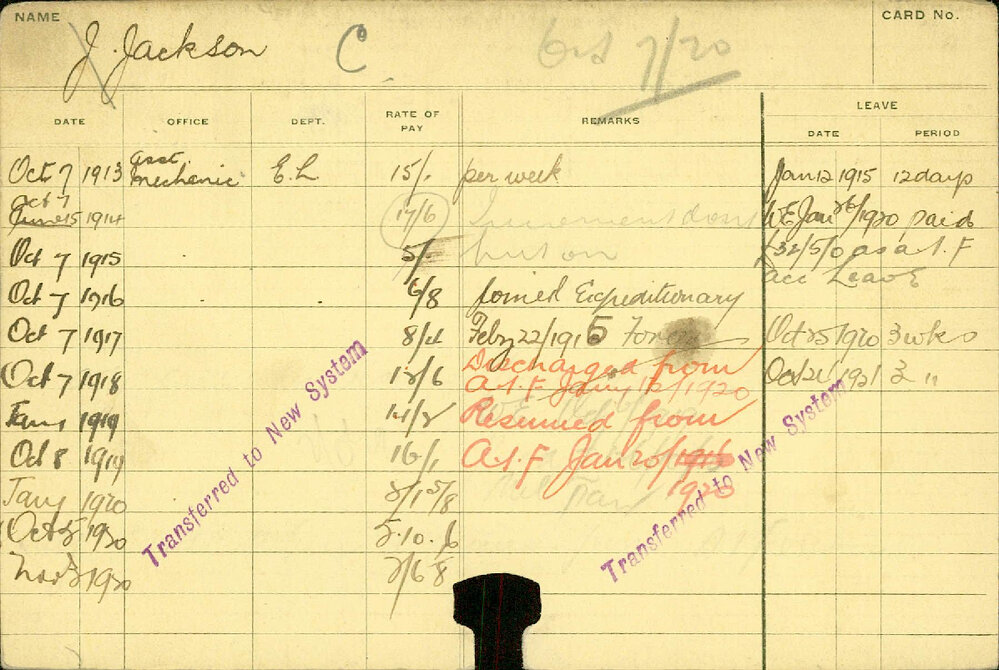 NAME
CARD No.
J. Jackson C 7/20
DATE OFFICE DEPT. RATE OF PAY REMARKS LEAVE
DATE PERIOD
Oct 7 1913 Asst. Mechanic E.L 15/. per week Jan 12 1915 12 days
Oct 7 June 15 1914 17/6 Increment dont W.E Jan 1920 paid
Oct 7 1915 5/- put on £32/5/0 as A.I.F
acc Leave
Oct 7 1916 6/8 Joined Expeditionary
Oct 7 1917 8/4 Feby 22/1915 Forces Oct 25 1920 3 wks
Oct 7 1918 12/6 Discharged from Oct 21 1921 3 "
A.I.F Jany 12/1920
Jany 1919 14/2 Resumed from
Oct 8 1919 16/1 A.I.F Jan 20/1916
1920
Jany 1920
Oct 1920 10.6
Nov 1920
Transferred to New System
Transferred to New System